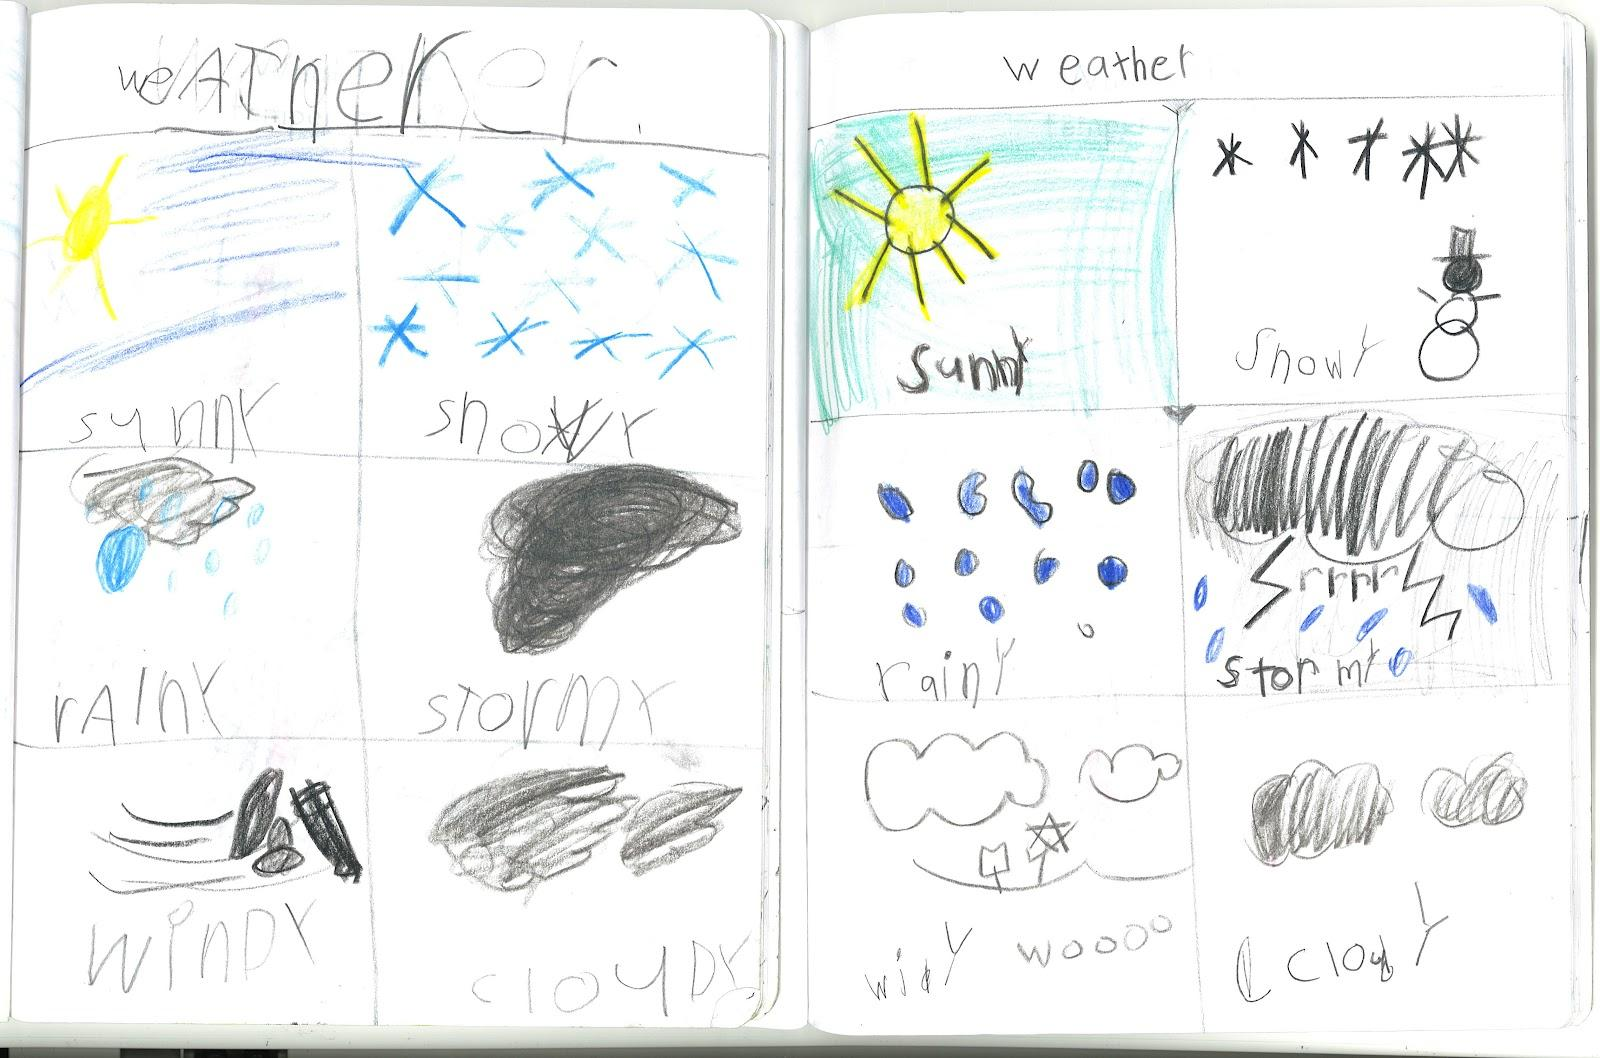 weATher
sunnY
snowY
rAinY
sTormY
winDY
clouDY
weather
sunnY
snowY
rainY
rrrrr
stormY
widY woooo
cloudY